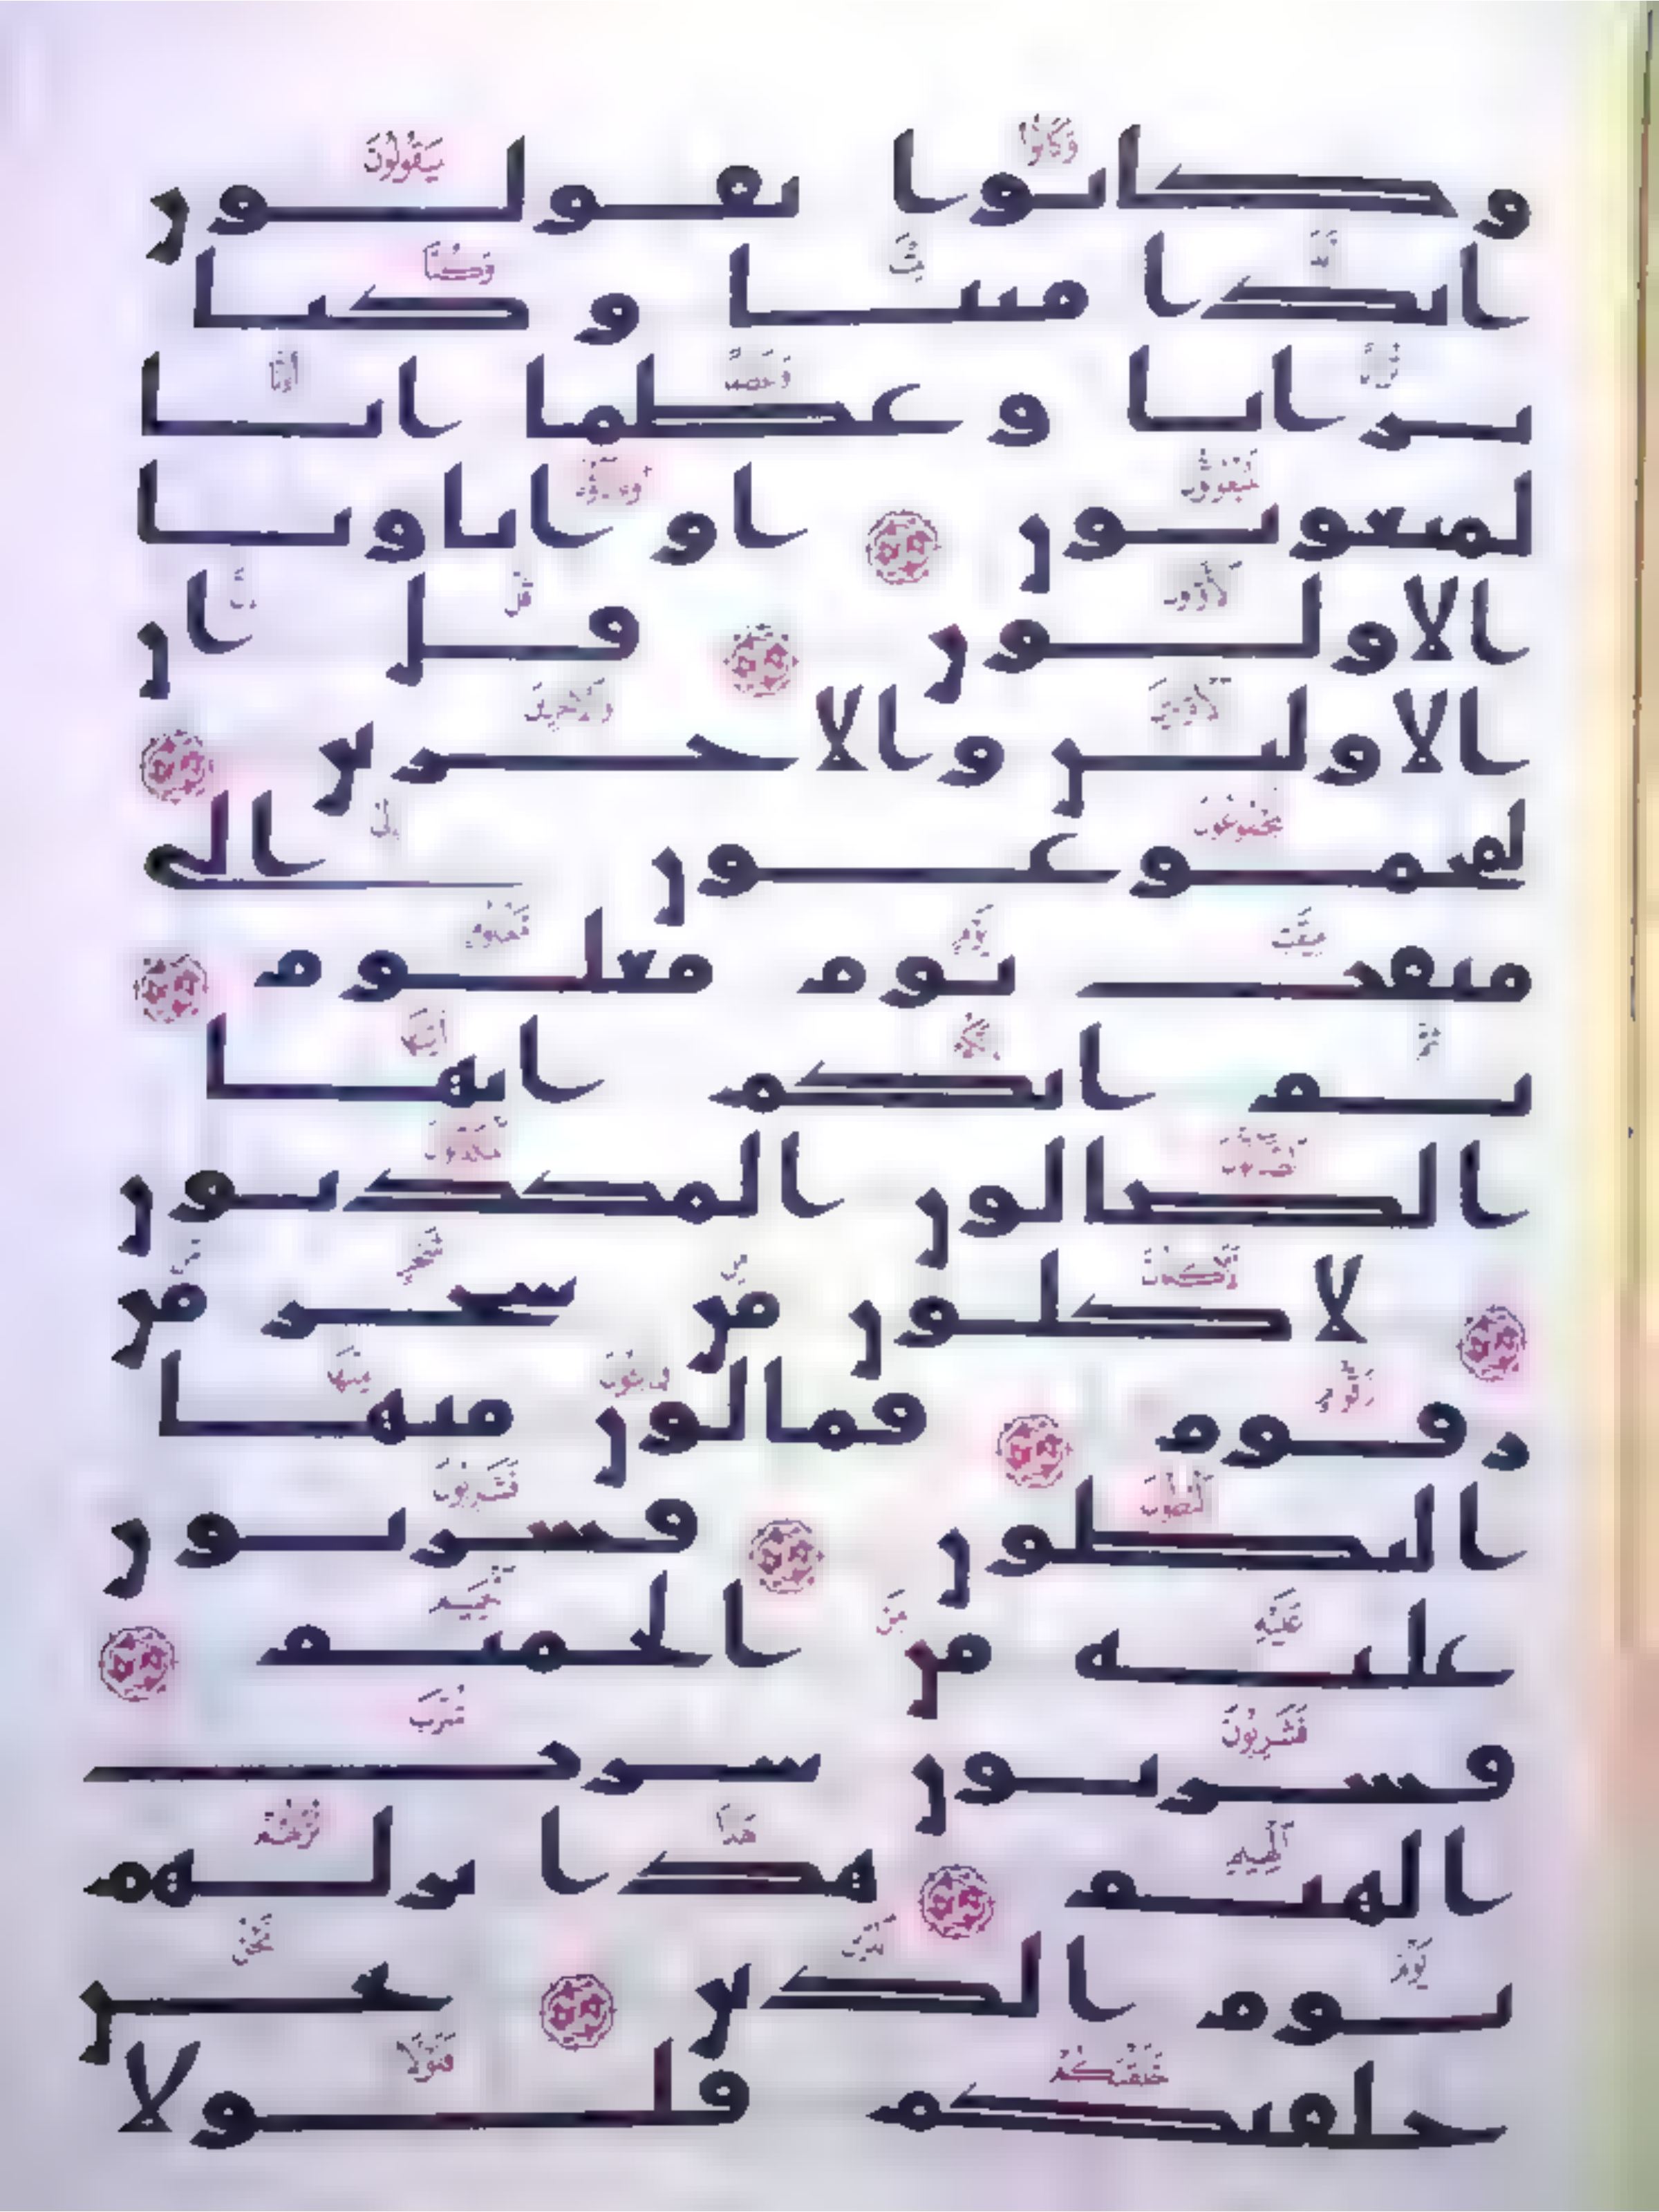 وكانوا يقولون
ائذا متنا وكنا
ترابا وعظما انا
لمبعوثون او اباونا
الاولون قل ان
الاولين والاخرين
لمجموعون الى
ميقت يوم معلوم
ثم انكم ايها
الضالون المكذبون
لاكلون من شجر من
زقوم فمالون منها
البطون فشربون
عليه من الحميم
فشربون شرب
الهيم هذا نزلهم
يوم الدين نحن
خلقنكم فلولا